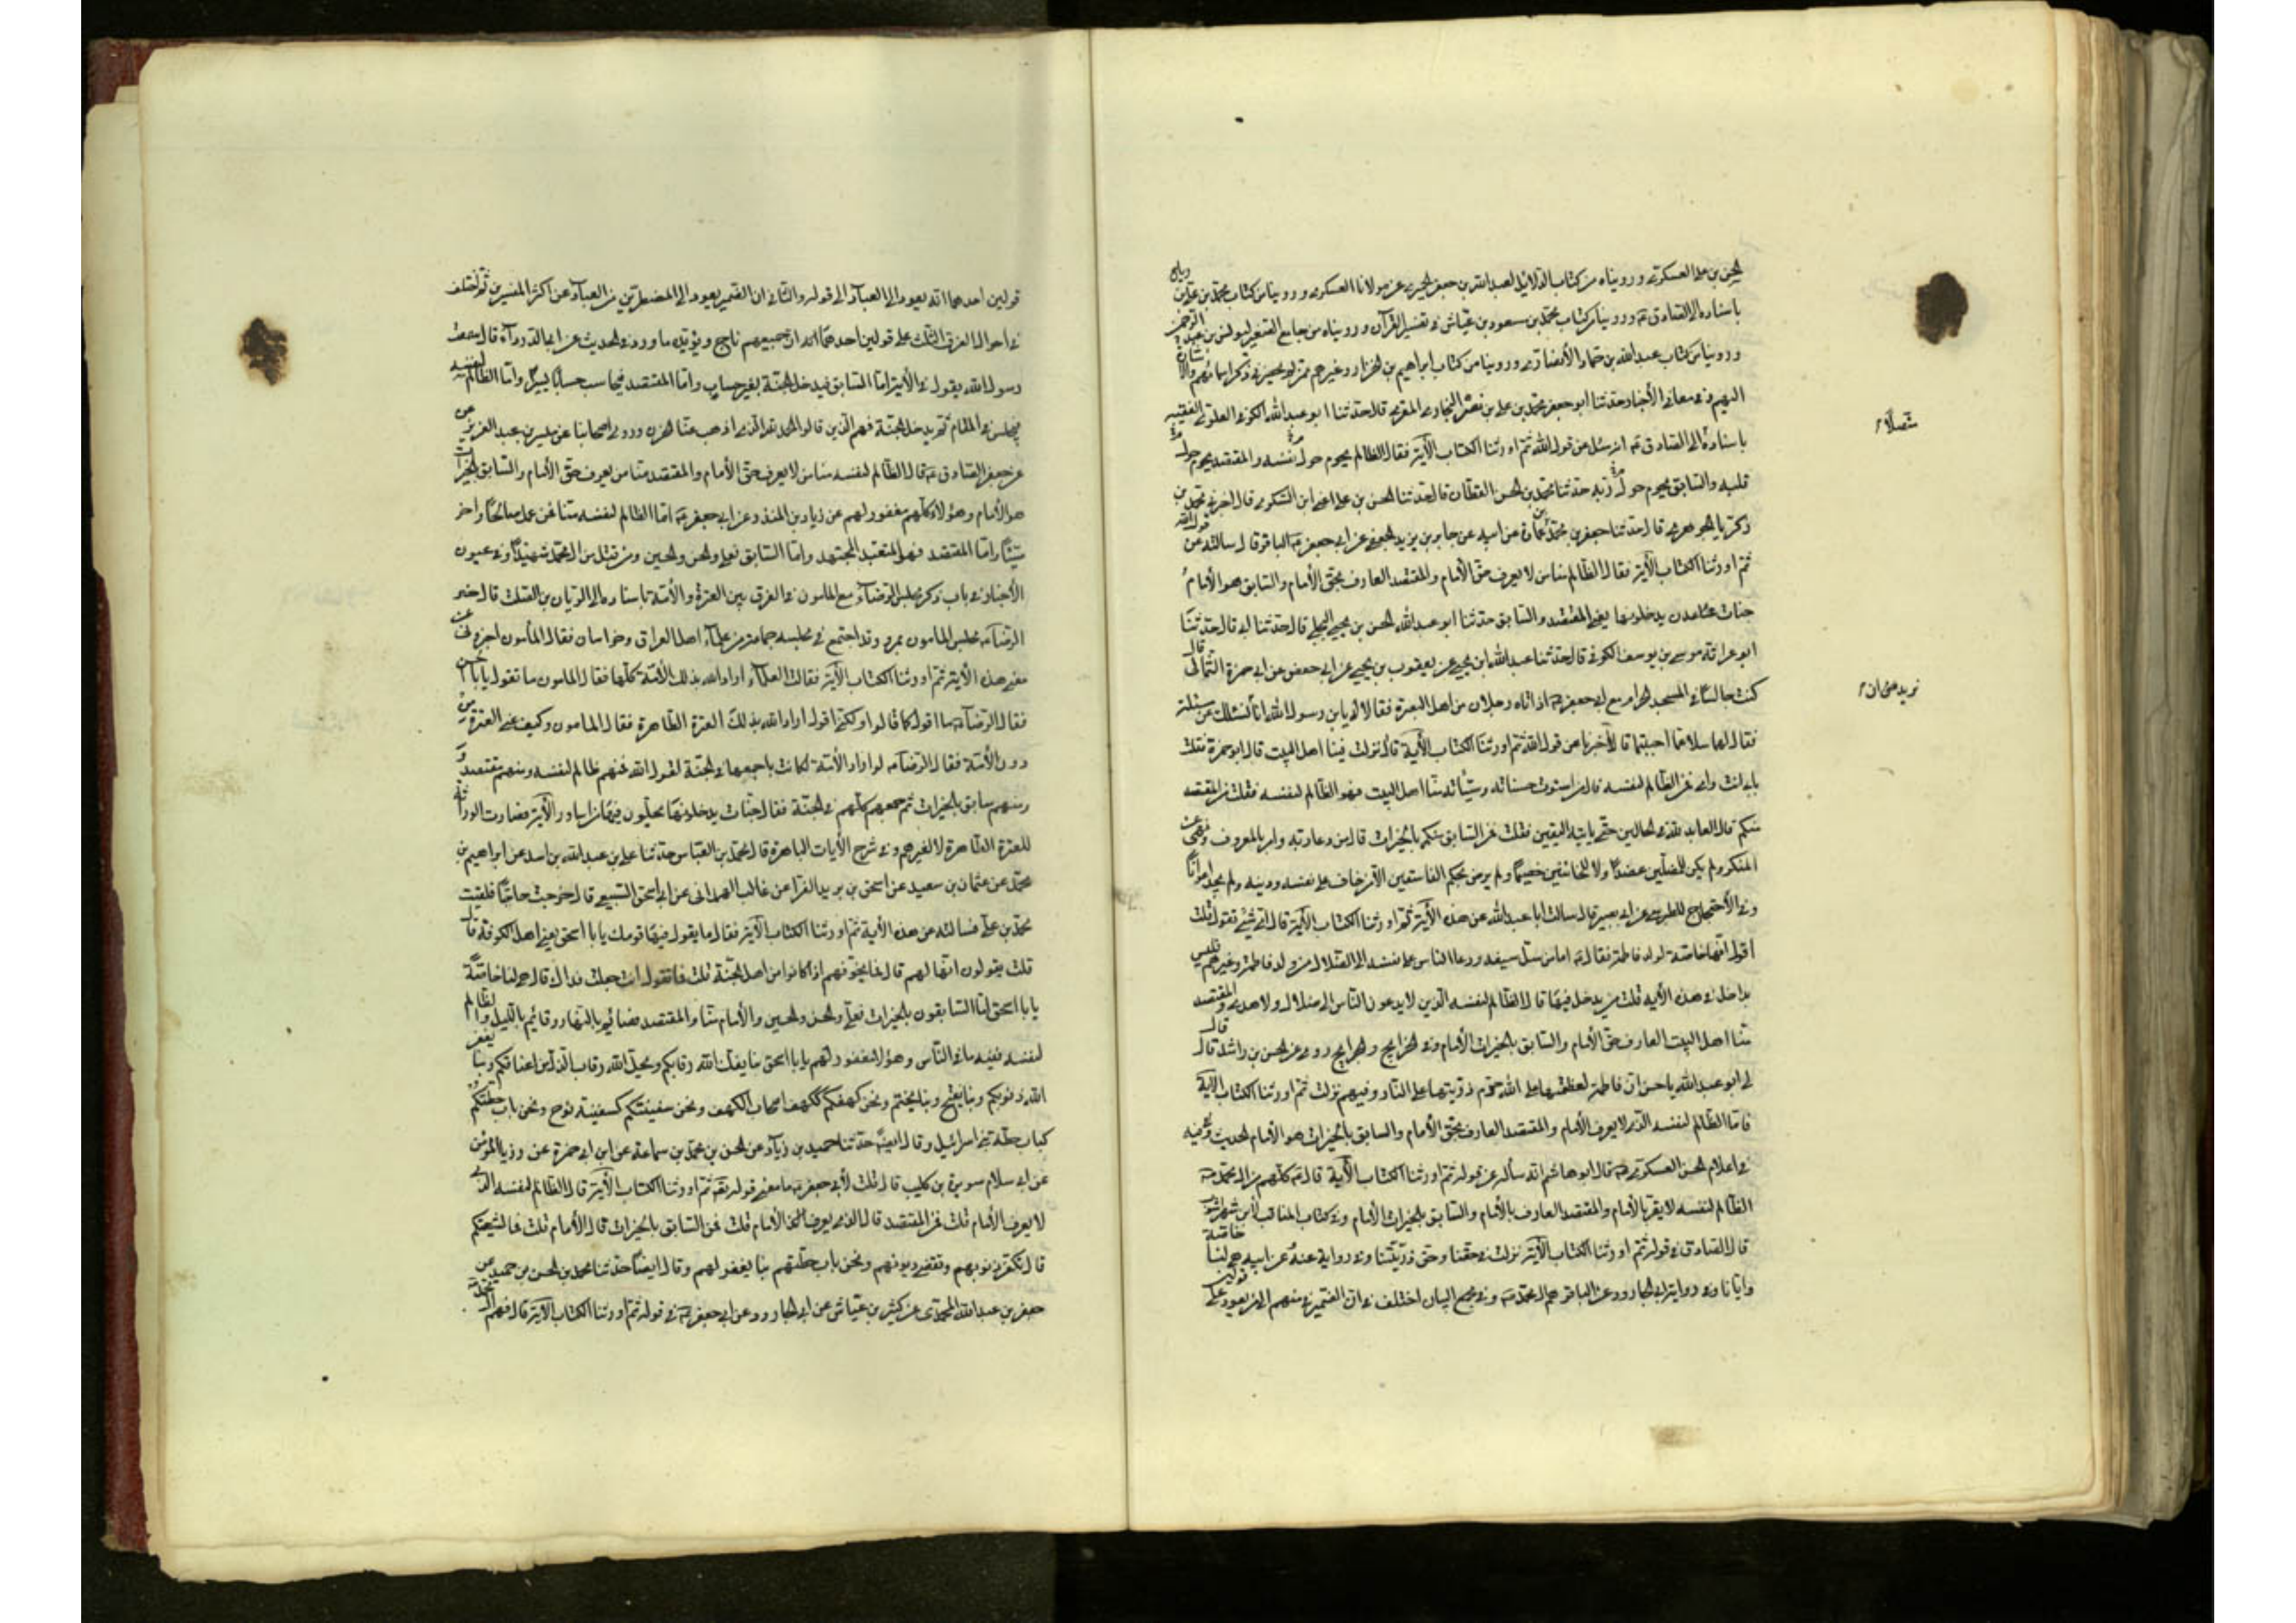 الحسن بن علي العسكري ورويناه من كتاب الدلائل لعبد الله بن جعفر الحميري عن مولانا العسكري وروينا من كتاب محمد بن علي بن رباح
باسناده الى الصادق ع وروينا من كتاب محمد بن مسعود بن عياش في تفسير القرآن ورويناه من جامع الصغير ليونس بن عبد الرحمن
وروينا من كتاب عبد الله بن حماد الأنصاري وروينا من كتاب ابراهيم بن الخزاز وغيرهم ممن لم يحضرني ذكر اسمائهم والاشارة
اليهم وفي معاني الأخبار حدثنا ابو جعفر محمد بن علي بن نصر البخاري المقري قال حدثنا ابو عبد الله الكوفي العلوي الفقيه
متصلا
باسناده الى الصادق ع انه سئل عن قول الله ثم اورثنا الكتاب الآية فقال الظالم يحوم حول نفسه والمقتصد يحوم حول
قلبه والسابق يحوم حول ربه حدثنا محمد بن الحسن القطان قال حدثنا الحسن بن علي اعني ابن السكري قال اخبرنا محمد بن
زكريا الجوهري قال حدثنا جعفر بن محمد بن عمارة عن ابيه عن جابر بن يزيد الجعفي عن ابي جعفر ع الباقر قال سالته عن قول الله
ثم اورثنا الكتاب الآية فقال الظالم منا من لا يعرف حق الأمام والمقتصد العارف بحق الأمام والسابق هو الأمام
جنات عدن يدخلونها يعني المقتصد والسابق حدثنا ابو عبد الله الحسن بن يحيى البجلي قال حدثنا ابي قال حدثنا
ابو عوانة موسى بن يوسف الكوفي قال حدثنا عبد الله بن يحيى عن يعقوب بن يحيى عن ابي حفص عن ابي حمزة الثمالي قال
كنت جالسا في المسجد الحرام مع ابي جعفر ع اذ اتاه رجلان من اهل البصرة فقالا له يا بن رسول الله انا نسئلك عن مسئلة
نريد ان
فقال لهما سلا عما احببتما قالا اخبرنا عن قول الله ثم اورثنا الكتاب الآية قال نزلت فينا اهل البيت قال ابو حمزة فقلت
بابي انت وامي فمن الظالم لنفسه قال من استوت حسناته وسيئاته منا اهل البيت فهو الظالم لنفسه فقلت فمن المقتصد
منكم قال العابد لله في الحالين حتى ياتيه اليقين فقلت فمن السابق منكم بالخيرات قال من دعا ربه وامر بالمعروف ونهى عن
المنكر ولم يكن للمضلين عضدا ولا للخائنين خصيما ولم يرض بحكم الفاسقين الا من خاف على نفسه ودينه ولم يجد اعوانا
وفي الأحتجاج للطبرسي عن ابي بصير قال سالت ابا عبد الله عن هذه الآية ثم اورثنا الكتاب الآية قال اي شيء تقول قلت
اقول انها خاصة لولد فاطمة فقال ع اما من سل سيفه ودعا الناس على نفسه الى الضلال من ولد فاطمة وغيرهم فليس
بداخل في هذه الآية قلت من يدخل فيها قال الظالم لنفسه الذي لا يدعو الناس الى ضلال ولا هدى والمقتصد
منا اهل البيت العارف حق الأمام والسابق بالخيرات الأمام وفي الخرايج والجرايح روى عن الحسن بن راشد قال قال
لي ابو عبد الله يا حسن ان فاطمة لعظمها على الله حرم ذريتها على النار وفيهم نزلت ثم اورثنا الكتاب الآية
فاما الظالم لنفسه الذي لا يعرف الأمام والمقتصد العارف بحق الأمام والسابق بالخيرات هو الأمام الحديث وفيه
في اعلام الحسن العسكري ع قال ابو هاشم انه سأله عن قوله ثم اورثنا الكتاب الآية قال ع كلهم من آل محمد ص
الظالم لنفسه لا يقر بالأمام والمقتصد العارف بالأمام والسابق بالخيرات الأمام وفي كتاب المناقب لأبن شهراشوب
قال الصادق في قوله ثم اورثنا الكتاب الآية نزلت في حقنا وحق ذريتنا وفي رواية عنه عن ابيه هي لنا خاصة
وايانا وفي رواية ابي الجارود عن الباقر هم آل محمد ص وفي مجمع البيان اختلف في ان الضمير في منهم الى من يعود على قولين
قولين احدهما انه يعود الى العباد الى قوله والثاني ان الضمير يعود الى المصطفين من العباد عن اكثر المفسرين ثم اختلف
في احوال الفرق الثلث على قولين احدهما ان جميعهم ناج ويؤيده ما ورد في الحديث عن ابي الدرداء قال سمعت
رسول الله يقول في الآية اما السابق فيدخل الجنة بغير حساب واما المقتصد فيحاسب حسابا يسيرا واما الظالم لنفسه
فيحبس في المقام ثم يدخل الجنة فهم الذين قالوا الحمد لله الذي اذهب عنا الحزن وروى اصحابنا عن ميسر بن عبد العزيز
عن جعفر الصادق ع قال الظالم لنفسه منا من لا يعرف حق الأمام والمقتصد منا من يعرف حق الأمام والسابق بالخيرات
هو الأمام وهؤلاء كلهم مغفور لهم عن زياد بن المنذر عن ابي جعفر ع اما الظالم لنفسه منا فمن عمل صالحا واخر
سيئا واما المقتصد فهو المتعبد المجتهد واما السابق فعلي والحسن والحسين ومن قتل من آل محمد شهيدا وفي عيون
الأخبار في باب ذكر مجلس الرضا ع مع المأمون في الفرق بين العترة والأمة باسناده الى الريان بن الصلت قال حضر
الرضا ع مجلس المامون بمرو وقد اجتمع في مجلسه جماعة من علماء اهل العراق وخراسان فقال المأمون اخبروني عن
معنى هذه الآية ثم اورثنا الكتاب الآية فقالت العلماء اراد الله بذلك الأمة كلها فقال المامون ما تقول يا ابا الحسن
فقال الرضا ع ما اقول كما قالوا ولكني اقول اراد الله بذلك العترة الطاهرة فقال المامون وكيف عنى العترة من
دون الأمة فقال الرضا ع لو اراد الأمة لكانت باجمعها في الجنة لقول الله فمنهم ظالم لنفسه ومنهم مقتصد و
ومنهم سابق بالخيرات ثم جمعهم كلهم في الجنة فقال جنات عدن يدخلونها يحلون فيها من اساور الآية فصارت الوراثة
للعترة الطاهرة لا لغيرهم وفي شرح الآيات الباهرة قال محمد بن العباس حدثنا علي بن عبد الله بن اسد عن ابراهيم بن
محمد عن عثمان بن سعيد عن اسحق بن يزيد الفرا عن غالب الهمداني عن ابي اسحق السبيعي قال خرجت حاجا فلقيت
محمد بن علي فسالته عن هذه الآية ثم اورثنا الكتاب الآية فقال ما يقول فيها قومك يا با اسحق يعني اهل الكوفة قال
قلت يقولون انها لهم قال فما يخوفهم اذا كانوا من اهل الجنة قلت فما تقول انت جعلت فداك قال هي لنا خاصة
يا با اسحق اما السابقون بالخيرات فعلي والحسن والحسين والأمام منا والمقتصد فصائم بالنهار وقائم بالليل والظالم
لنفسه ففيه ما في الناس وهو مغفور لهم يا با اسحق بنا يفك الله رقابكم ويحل الله رقاب الذل من اعناقكم وبنا يغفر
الله ذنوبكم وبنا يفتح وبنا يختم ونحن كهفكم ككهف اصحاب الكهف ونحن سفينتكم كسفينة نوح ونحن باب حطتكم
كباب حطة بني اسرائيل وقال ايضا حدثنا حميد بن زياد عن الحسن بن محمد بن سماعة عن ابن ابي حمزة عن زكريا المؤمن
عن ابي سلام سورة بن كليب قال قلت لأبي جعفر ع ما معنى قوله تع ثم اورثنا الكتاب الآية قال الظالم لنفسه الذي
لا يعرف الأمام قلت فمن المقتصد قال الذي يعرف الأمام قلت فمن السابق بالخيرات قال الأمام قلت فما لشيعتكم
قال تكفر ذنوبهم وتقضى ديونهم ونحن باب حطتهم بنا يغفر لهم وقال ايضا حدثنا محمد بن الحسن بن حميد عن
جعفر بن عبد الله المحمدي عن كثير بن عياش عن ابي الجارود عن ابي جعفر ع في قوله ثم اورثنا الكتاب الآية قال فهم آل محمد